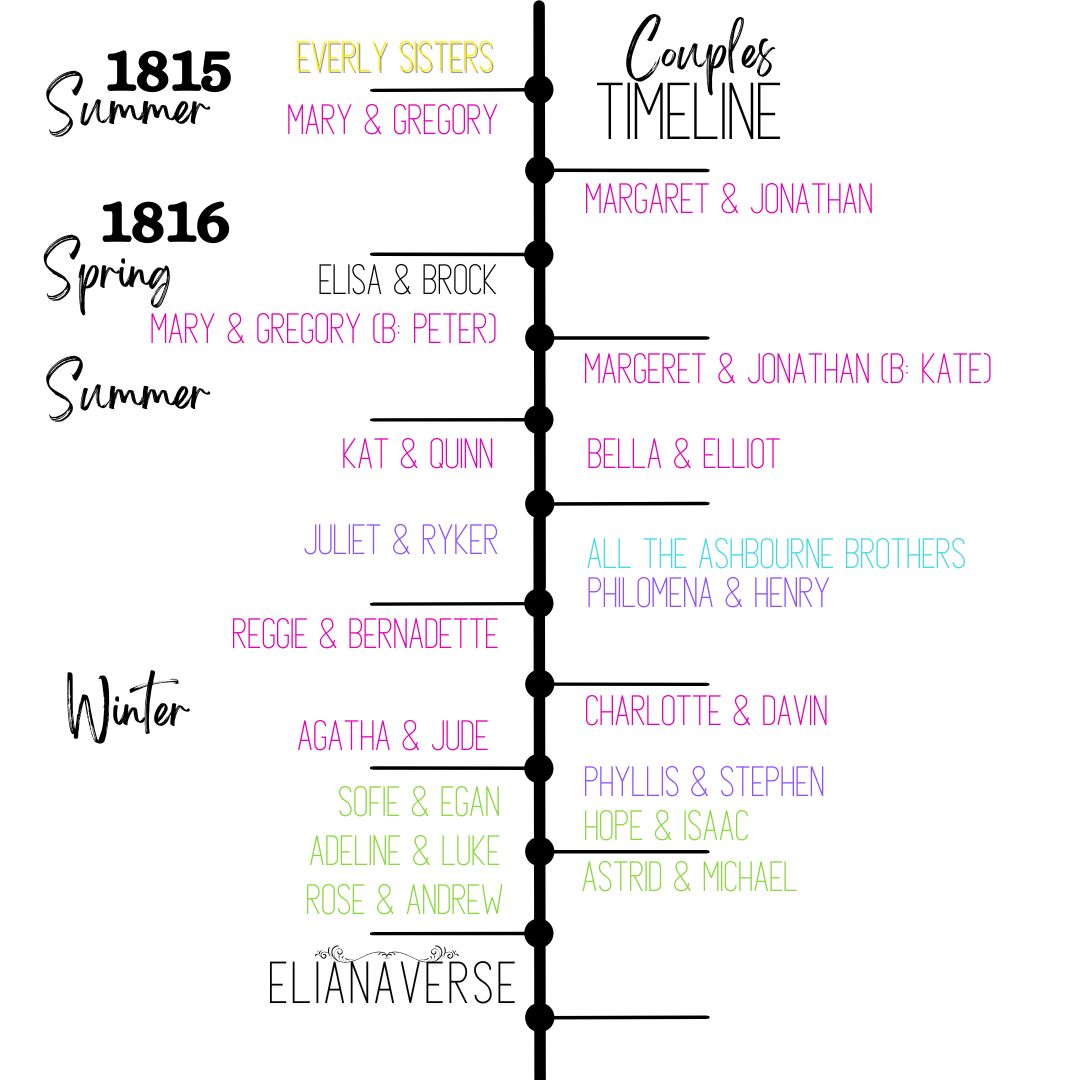 Couples
TIMELINE
1815
Summer
EVERLY SISTERS
MARY & GREGORY
MARGARET & JONATHAN
1816
Spring
ELISA & BROCK
MARY & GREGORY (B: PETER)
MARGERET & JONATHAN (B: KATE)
Summer
KAT & QUINN
BELLA & ELLIOT
JULIET & RYKER
ALL THE ASHBOURNE BROTHERS
PHILOMENA & HENRY
REGGIE & BERNADETTE
Winter
CHARLOTTE & DAVIN
AGATHA & JUDE
PHYLLIS & STEPHEN
SOFIE & EGAN
HOPE & ISAAC
ADELINE & LUKE
ASTRID & MICHAEL
ROSE & ANDREW
ELIANAVERSE